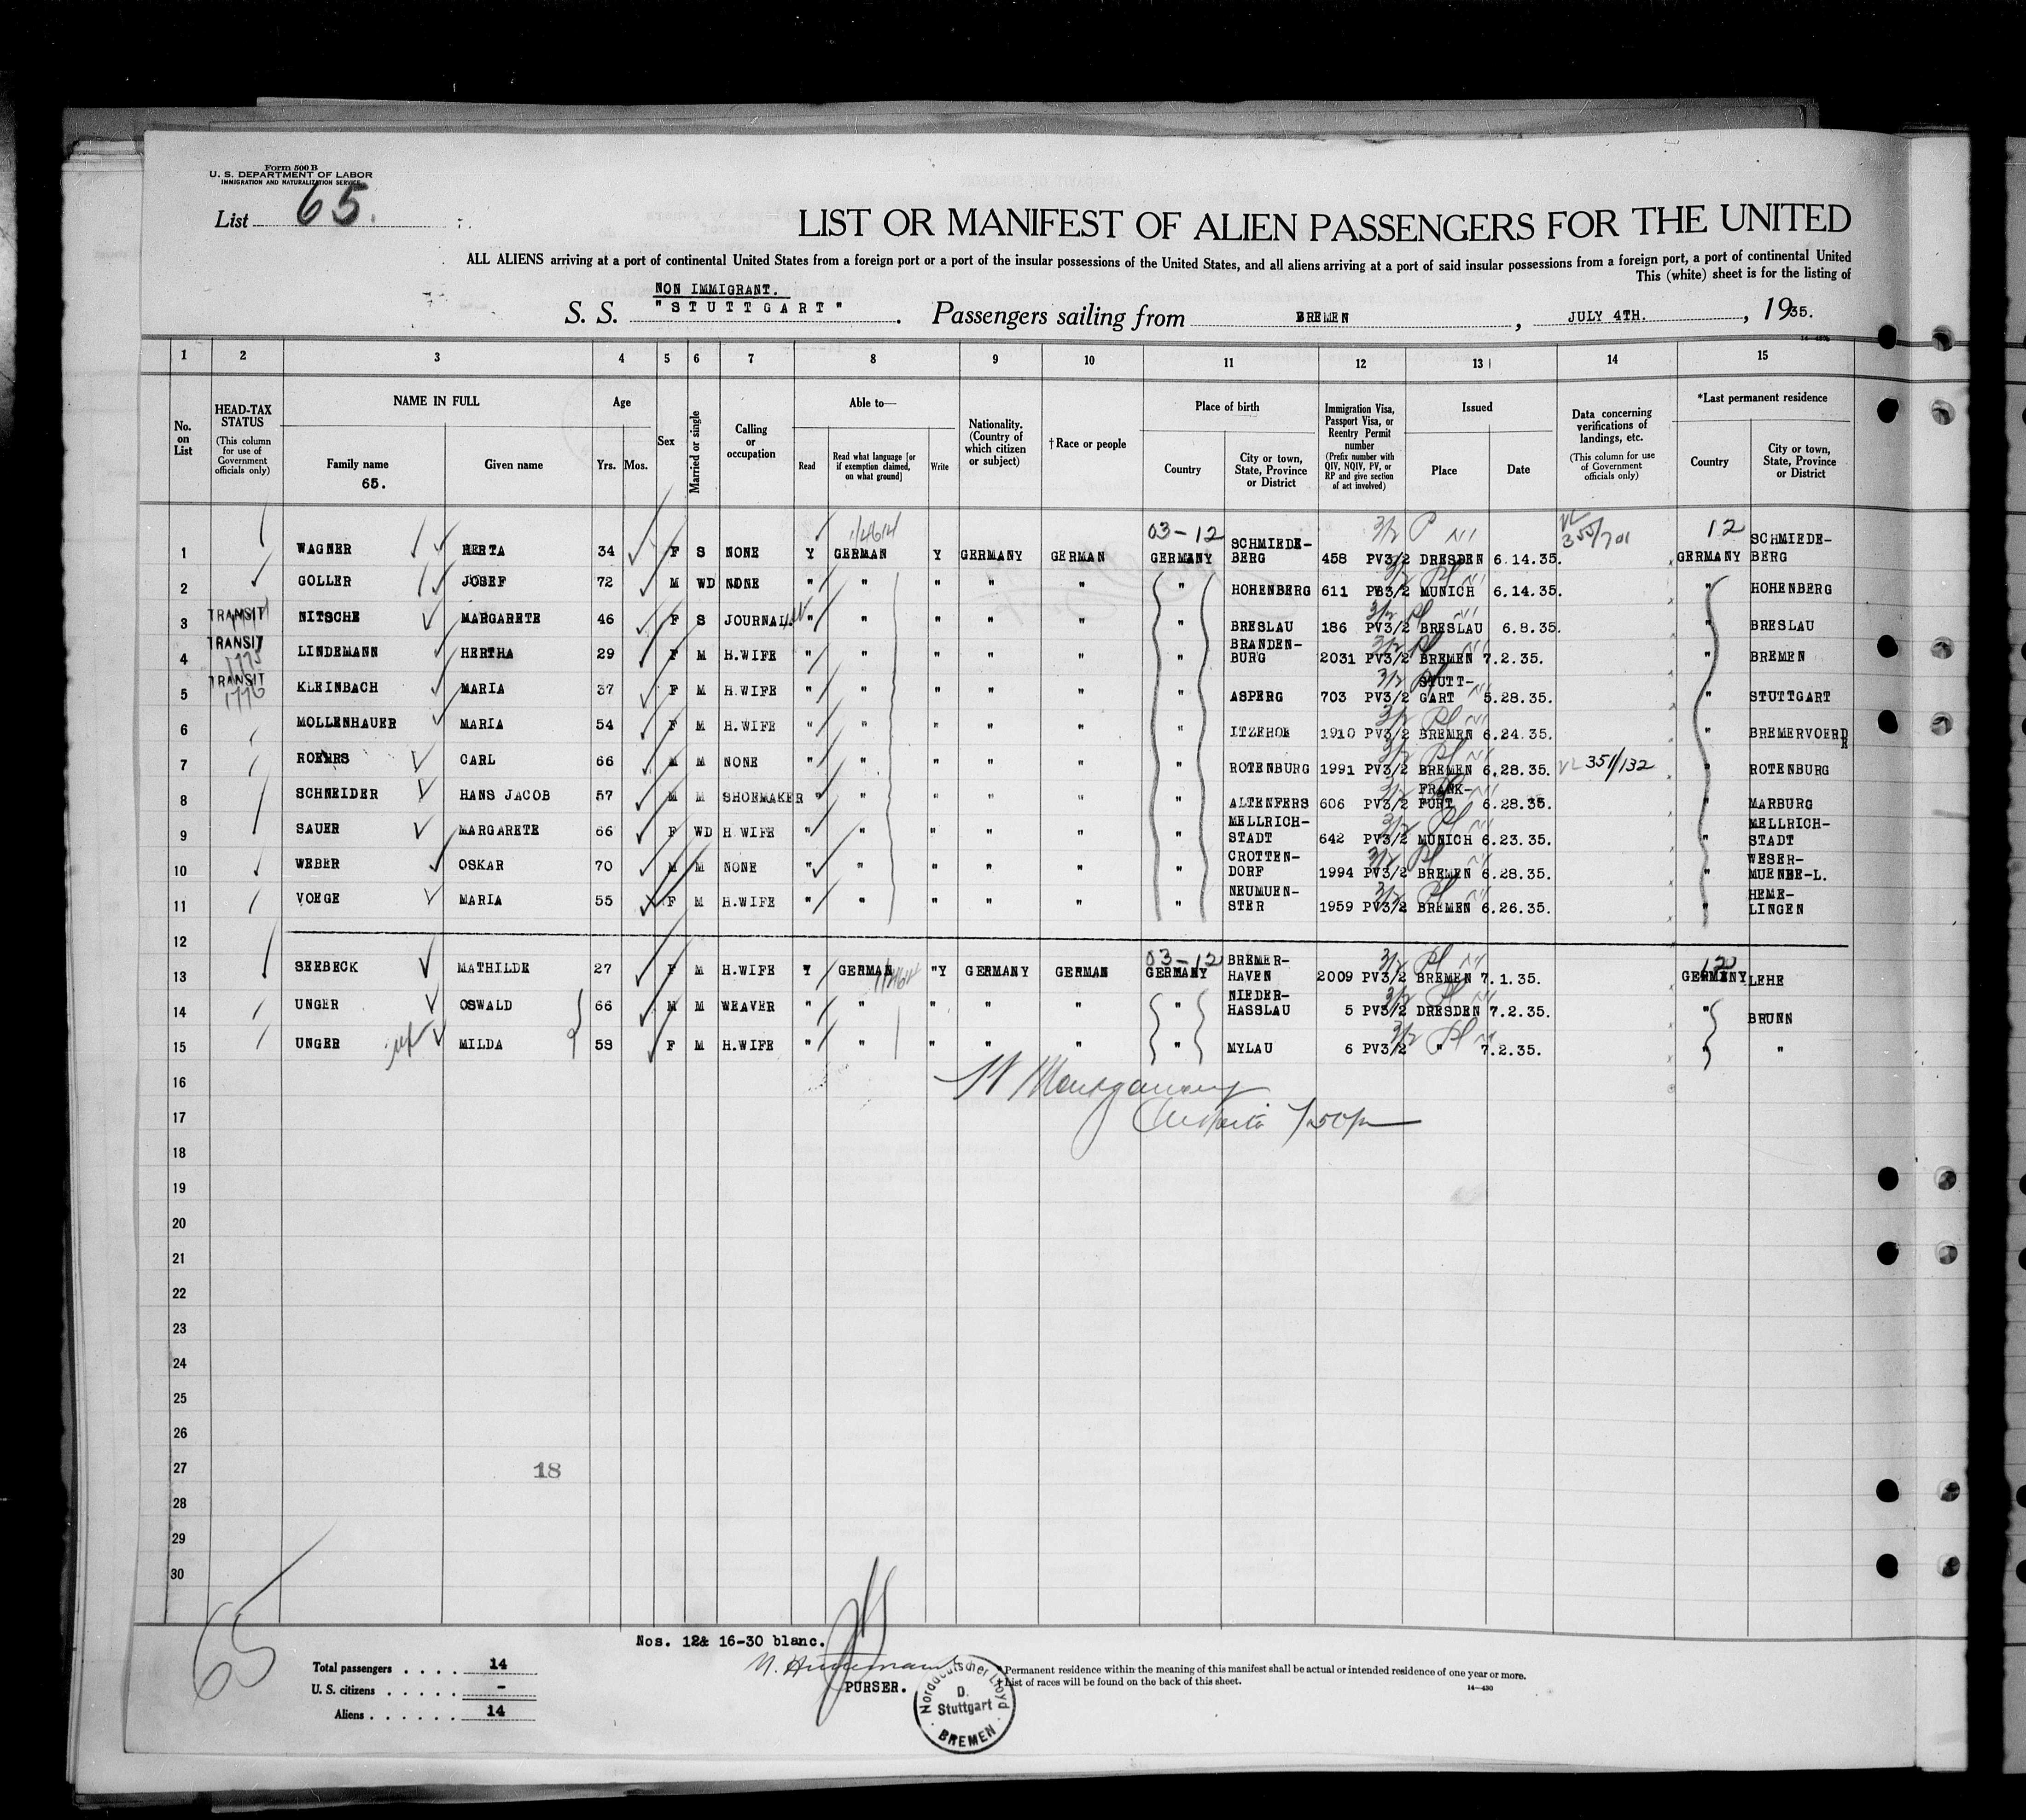 Form 500 B
U. S. DEPARTMENT OF LABOR
IMMIGRATION AND NATURALIZATION SERVICE
List 65.
LIST OR MANIFEST OF ALIEN PASSENGERS FOR THE UNITED
ALL ALIENS arriving at a port of continental United States from a foreign port or a port of the insular possessions of the United States, and all aliens arriving at a port of said insular possessions from a foreign port, a port of continental United
This (white) sheet is for the listing of
NON IMMIGRANT.
S. S. "STUTTGART". Passengers sailing from BREMEN, JULY 4TH., 1935.
1 2 3 4 5 6 7 8 9 10 11 12 13 14 15
No. on List
HEAD-TAX STATUS (This column for use of Government officials only)
NAME IN FULL
Family name
65.
Given name
Age
Yrs. Mos.
Sex
Married or single
Calling or occupation
Able to—
Read
Read what language [or if exemption claimed, on what ground]
Write
Nationality. (Country of which citizen or subject)
†Race or people
Place of birth
Country
City or town, State, Province or District
Immigration Visa, Passport Visa, or Reentry Permit number (Prefix number with QIV, NQIV, PV, or RP and give section of act involved)
Issued
Place
Date
Data concerning verifications of landings, etc. (This column for use of Government officials only)
*Last permanent residence
Country
City or town, State, Province or District
03-12 12
1 WAGNER HERTA 34 F S NONE Y GERMAN Y GERMANY GERMAN GERMANY SCHMIEDE-BERG 458 PV3/2 DRESDEN 6.14.35. GERMANY SCHMIEDE-BERG
2 GOLLER JOSEF 72 M WD NONE " " " " " " HOHENBERG 611 PV3/2 MUNICH 6.14.35. " HOHENBERG
3 TRANSIT NITSCHE MARGARETE 46 F S JOURNAL. " " " " " " BRESLAU 186 PV3/2 BRESLAU 6.8.35. " BRESLAU
4 TRANSIT 1775 LINDEMANN HERTHA 29 F M H.WIFE " " " " " " BRANDEN-BURG 2031 PV3/2 BREMEN 7.2.35. " BREMEN
5 TRANSIT 1776 KLEINBACH MARIA 37 F M H.WIFE " " " " " " ASPERG 703 PV3/2 STUTT-GART 5.28.35. " STUTTGART
6 MOLLENHAUER MARIA 54 F M H.WIFE " " " " " " ITZEHOE 1910 PV3/2 BREMEN 6.24.35. " BREMERVOERDE
7 ROEHRS CARL 66 M M NONE " " " " " " ROTENBURG 1991 PV3/2 BREMEN 6.28.35. VL 351/132 " ROTENBURG
8 SCHNEIDER HANS JACOB 57 M M SHOEMAKER " " " " " " ALTENFERS 606 PV3/2 FRANK-FURT 6.28.35. " MARBURG
9 SAUER MARGARETE 66 F WD H.WIFE " " " " " " MELLRICH-STADT 642 PV3/2 MUNICH 6.23.35. " MELLRICH-STADT
10 WEBER OSKAR 70 M M NONE " " " " " " CROTTEN-DORF 1994 PV3/2 BREMEN 6.28.35. " WESER-MUENDE-L.
11 VOEGE MARIA 55 F M H.WIFE " " " " " " NEUMUEN-STER 1959 PV3/2 BREMEN 6.26.35. " HEME-LINGEN
12
03-12
13 SEEBECK MATHILDE 27 F M H.WIFE Y GERMAN "Y GERMANY GERMAN GERMANY BREMER-HAVEN 2009 PV3/2 BREMEN 7.1.35. GERMANY LEHE
14 UNGER OSWALD 66 M M WEAVER " " " " " " NIEDER-HASSLAU 5 PV3/2 DRESDEN 7.2.35. " BRUNN
15 UNGER MILDA 58 F M H.WIFE " " " " " " MYLAU 6 PV3/2 " 7.2.35. " "
16
17
18
19
20
21
22
23
24
25
26
27
18
28
29
30
65
Nos. 12& 16-30 blanc.
Total passengers . . . . 14
U. S. citizens . . . . . -
Aliens . . . . . . 14
PURSER.
Norddeutscher Lloyd
D. Stuttgart
BREMEN
*Permanent residence within the meaning of this manifest shall be actual or intended residence of one year or more.
†List of races will be found on the back of this sheet.
14-430